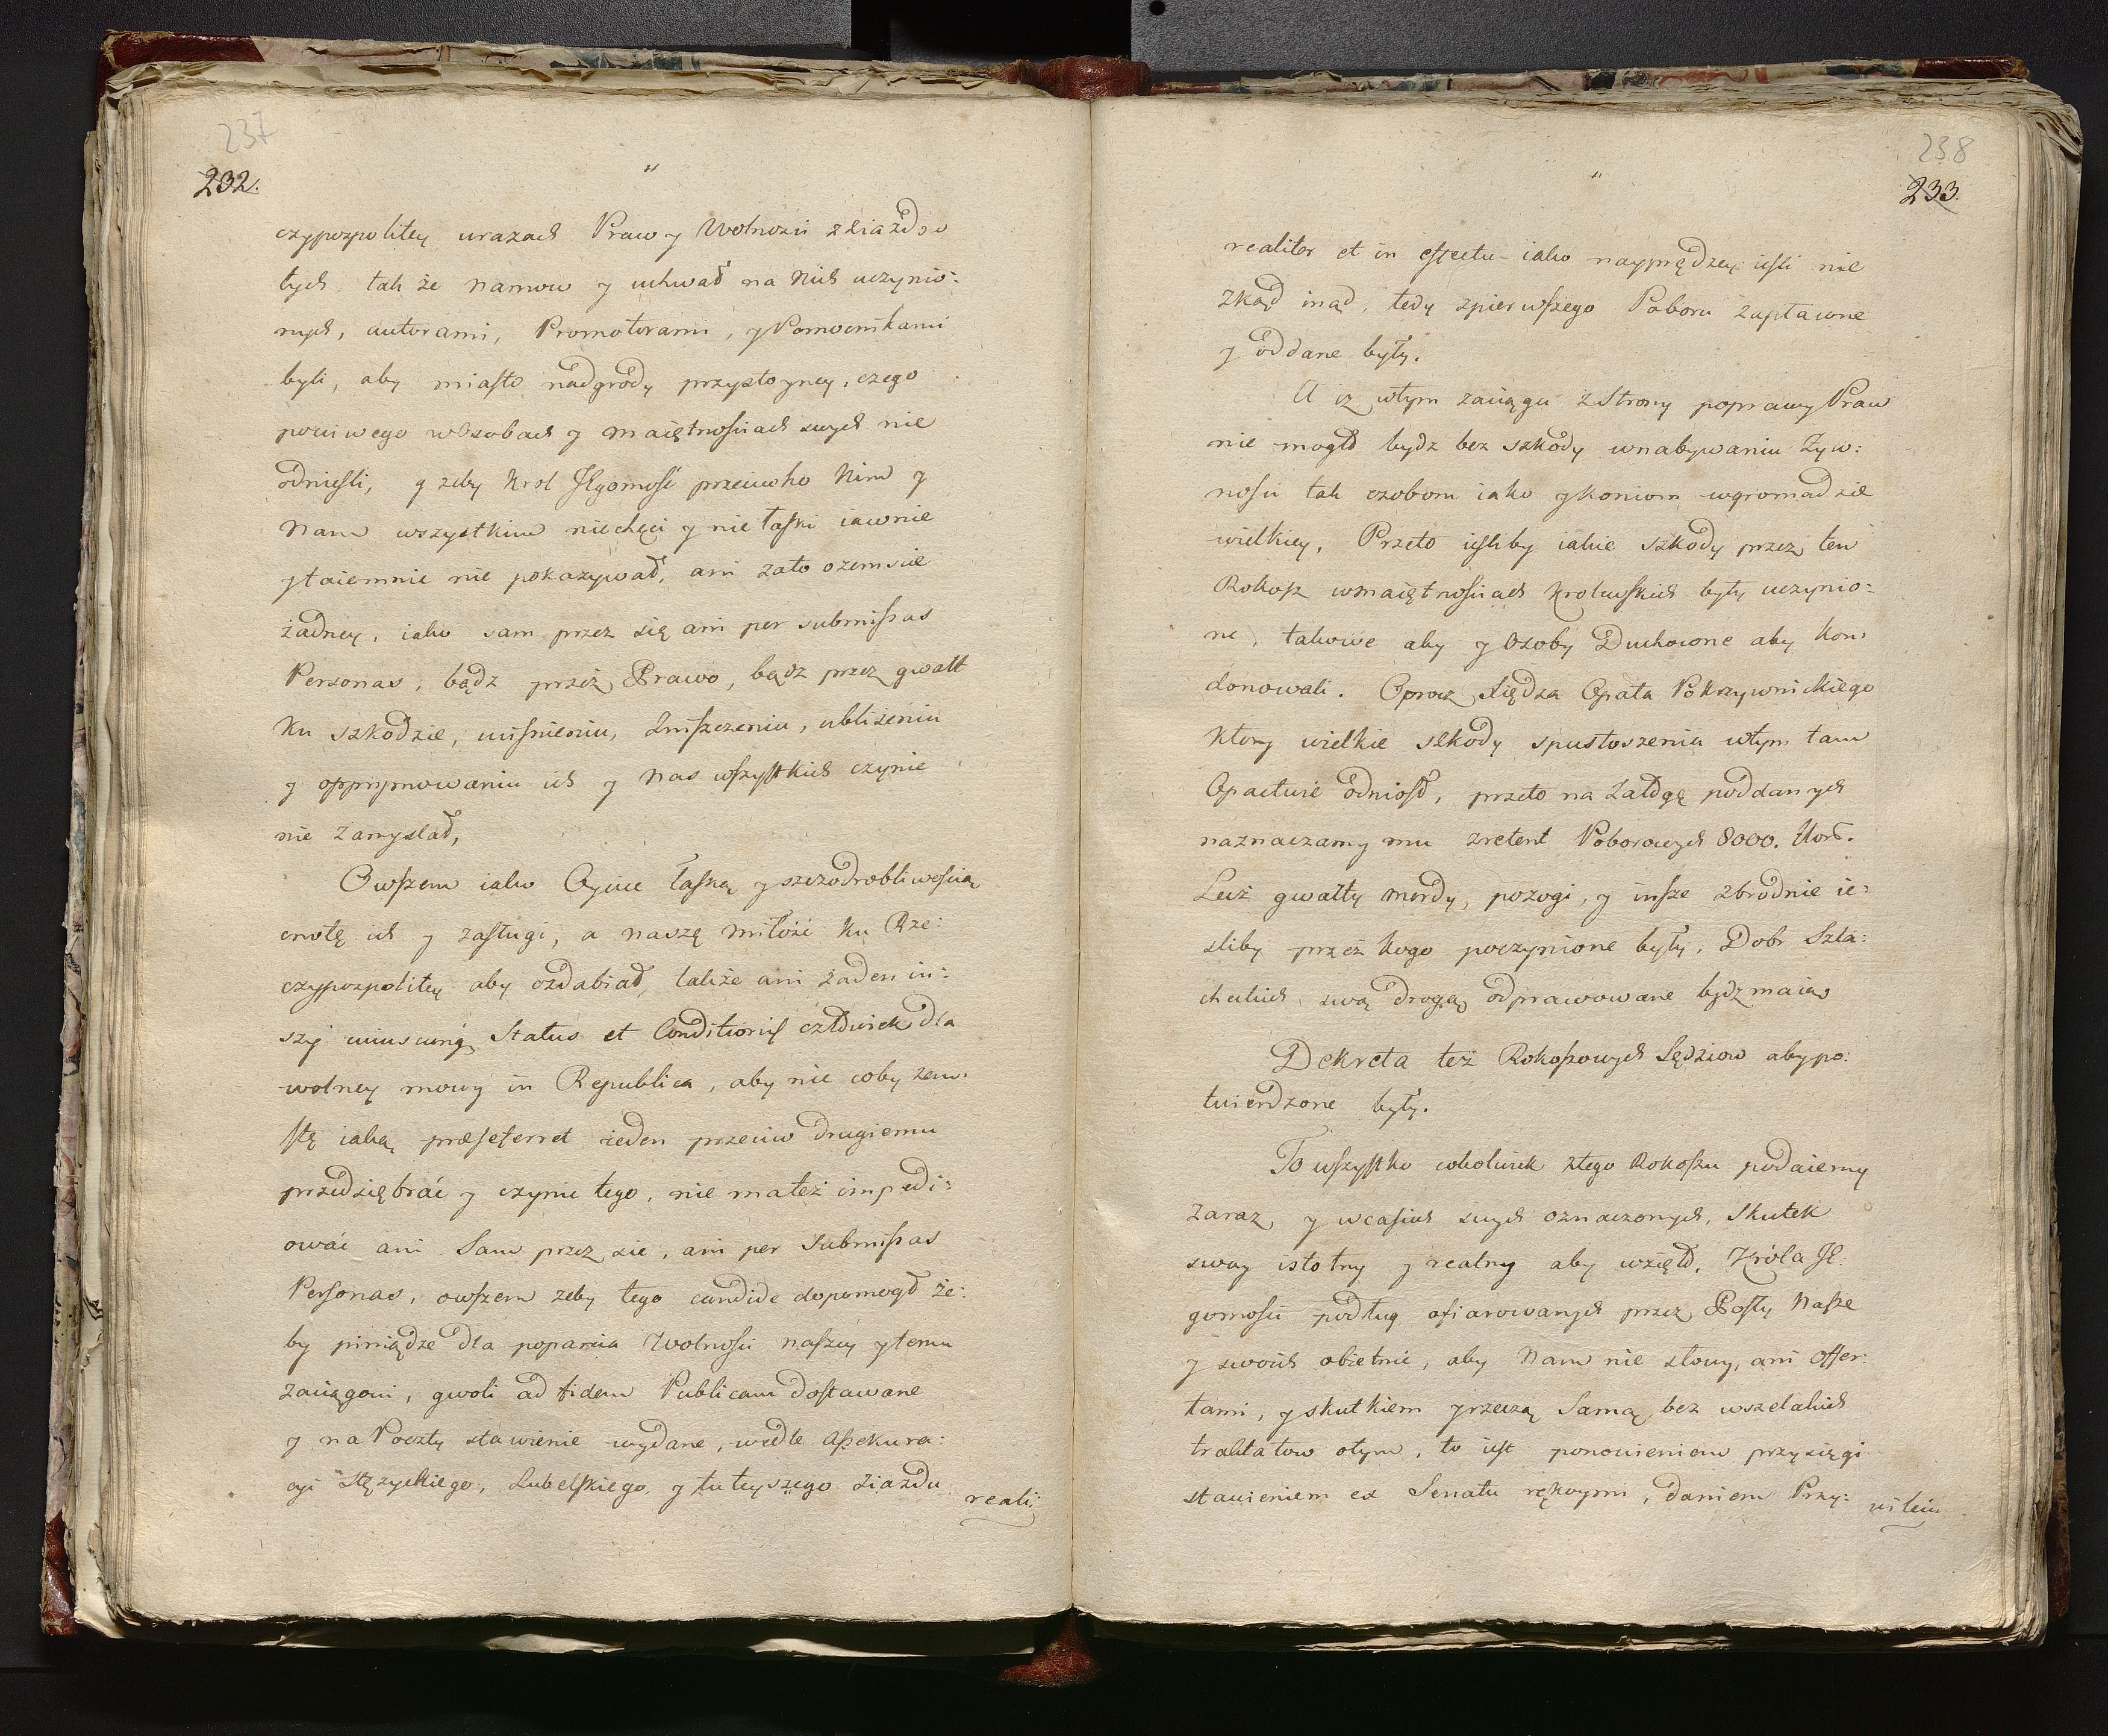 237
232.
"
czypozpolitey urazach Praw y Wolnosci zziazdow
tych, tak że namow y uchwał na nich uczynio:
nych, autorami, Promotorami, y Pomocnikami
byli, aby miasto nadgrody przystoyney, czego
pociwego wosobach y maiętnosciach swych nie
odniesli, y zeby Krol JEgomość przeciwko Nim y
Nam wszystkim niechęci y nie łaski iawnie
ytaiemnie nie pokazywał, ani zato ozemscie
żadney, iako sam przez się ani per submissas
Personas, bądz przez Prawo, bądz przez gwałt
Ku szkodzie, uciśnieniu, zniszczeniu, ubliżeniu
y opprymowaniu ich y Nas wszystkich czynie
nie zamyslał,
Owszem iako Oyciec łaską y szczodrobliwością
cnotę ich y zasługi, a naszę miłość ku Rze:
czypospolitey aby ozdabiał, także ani żaden in:
szy cuiuscunq Status et Conditionis człowiek dla
wolney mowy in Republica, aby nie coby zem:
stę iaką præseferret ieden przeciw drugiemu
przedsiębrać y czynic tego, nie mateż impedi:
ować ani Sam przez sie, ani per Submissas
Personas, owszem zeby tego candide dopomogł że:
by piniądze dla poparcia Wolnosci naszey ytemu
zaciągowi, gwoli ad fidem Publicam dostawane
y na Poczty stawienie wydane, wedle Assekura:
cyi Stęzyckiego, Lubelskiego y tuteyszego Ziazdu
reali:
238
233.
"
realiter et in effectu iako nayprędzey iesli nie
zkąd inąd, tedy zpierwszego Poboru zapłacone
y oddane były.
A iz wtym zaciągu z Strony poprawy Praw
nie mogło bydz bez szkody wnabywaniu Zyw:
nosci tak osobom iako y koniom wgromadzie
wielkiey, Przeto iesliby iakie szkody przez ten
Rokosz wmaiętnosciach Krolewskich były uczynio:
ne, takowe aby y Osoby Duchowne aby kon
donowali. Oprocz Xiędza Opata Pokrzywnickiego
ktory wielkie szkody spustoszenia wtym tam
Opactwie odniosł, przeto na Załogę poddanych
naznaczamy mu zretent Poborowych 8000.
Lecz gwałty mordy, pozogi, y insze zbrodnie ie:
sliby przez kogo poczynione były, Dobr Szla:
checkich swą drogą odprawowane bydz maią
Dekreta też Rokoszowych Sędziow aby po:
twierdzone były.
To wszystko cokolwiek ztego Rokoszu podaiemy
Zaraz, y wcasiech swych oznaczonych, Skutek
swoy istotny y realny aby wzięło, Króla JE:
gomosci podług ofiarowanych przez Posły Nasze
y swoich obietnic, aby Nam nie słowy, ani Offer:
tami, y skutkiem y rzeczą Samą, bez wszelakich
traktatow otym, to iest ponowieniem przysięgi
stawieniem ex Senatu rękoymi, daniem Przy:
wileiu